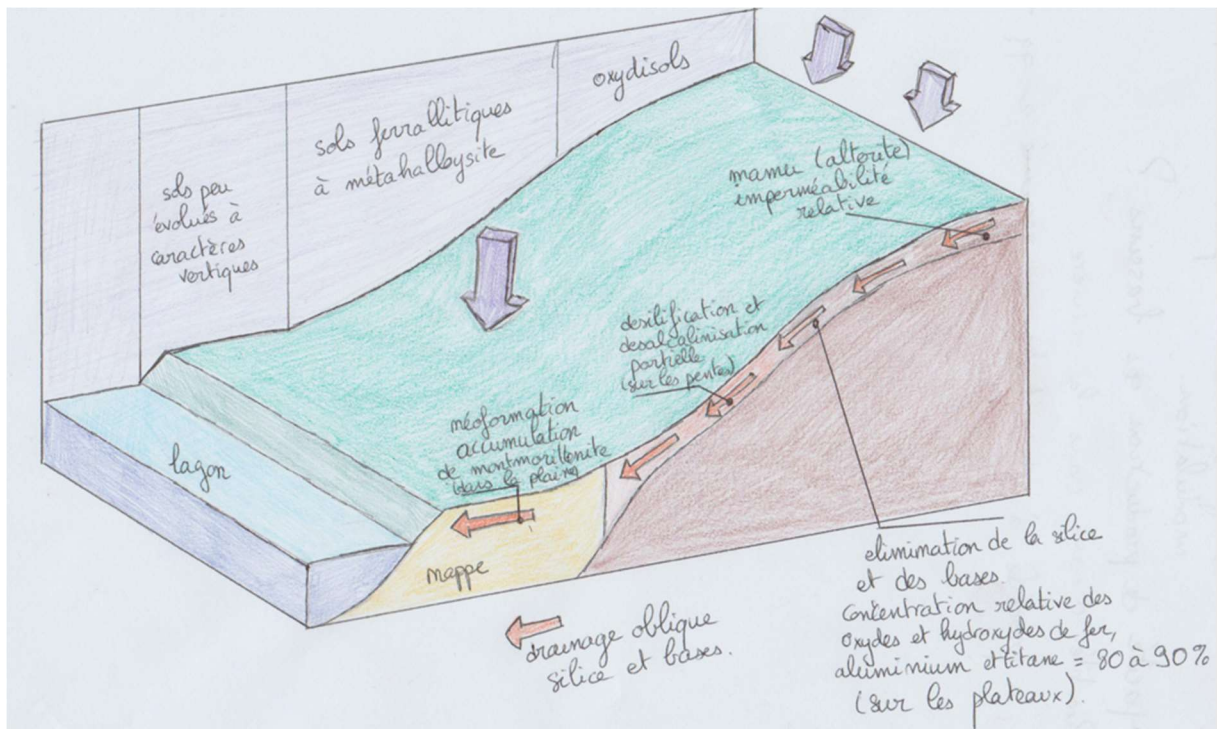 oxydisols
sols ferrallitiques
à métahalloysite
sols peu
évolués à
caractères
vertiques
mamu (alterite)
imperméabilité
relative
desilification et
desalcalinisation
partielle
(sur les pentes)
néoformation
accumulation
de montmorillonite
(dans la plaine)
lagon
mappe
drainage oblique
silice et bases.
elimination de la silice
et des bases.
concentration relative des
oxydes et hydroxydes de fer,
aluminium et titane = 80 à 90%
(sur les plateaux).